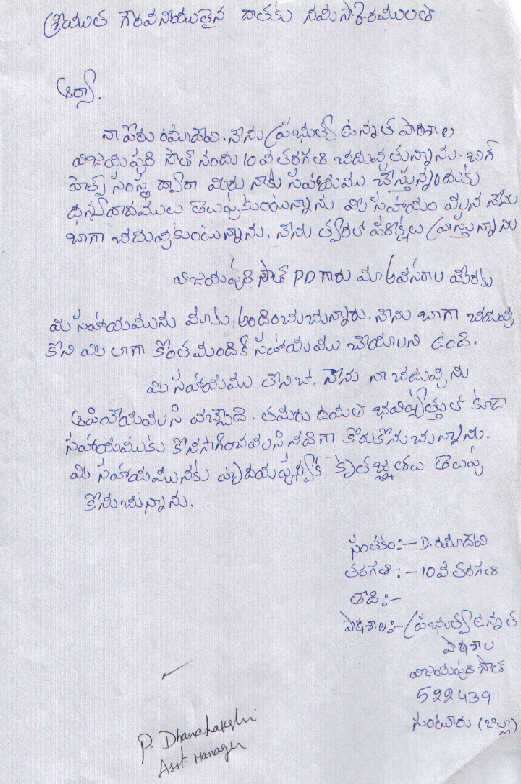 శ్రీయుత గౌరవనీయులైన దాతకు నమస్కారములతో
ఆర్యా.
నా పేరు రమాదేవి. నేను ప్రభుత్వ ఉన్నత పాఠశాల
విజయపురి సౌత్ నందు 10వ తరగతి చదువుతున్నాను.
హెల్ప్ సంస్థ ద్వారా మీరు నాకు సహాయము చేస్తున్నందుకు
ధన్యవాదములు తెలుపుకుంటున్నాను మీ సహాయం వలన నేను
బాగా చదువుకుంటున్నాను. నేను త్వరలో పరీక్షలు వ్రాస్తున్నాను
విజయపురి సౌత్ PD గారు మా అవసరాల మేరకు
మీ సహాయమును మాకు అందించుచున్నారు. నేను బాగా చదువు
కొని మీ లాగా కొంతమందికి సహాయము చేయాలని ఉంది.
మీ సహాయము లేనిచో. నేను నా చదువును
ఆపివేయవలసి వచ్చేది. తమరు దయతో భవిష్యత్తులో కూడా
సహాయమును కొనసాగించవలసినదిగా కోరుకొనుచున్నాను.
మీ సహాయమునకు హృదయపూర్వక కృతజ్ఞతలు తెలుపు
కొనుచున్నాను.
సంతకం:- D. రమాదేవి
తరగతి :- 10వ తరగతి
తేది:-
పాఠశాల:- ప్రభుత్వ ఉన్నత
పాఠశాల
విజయపురి సౌత్
522439
గుంటూరు (జిల్లా)
P. Dhanalakshmi
Asst Manager